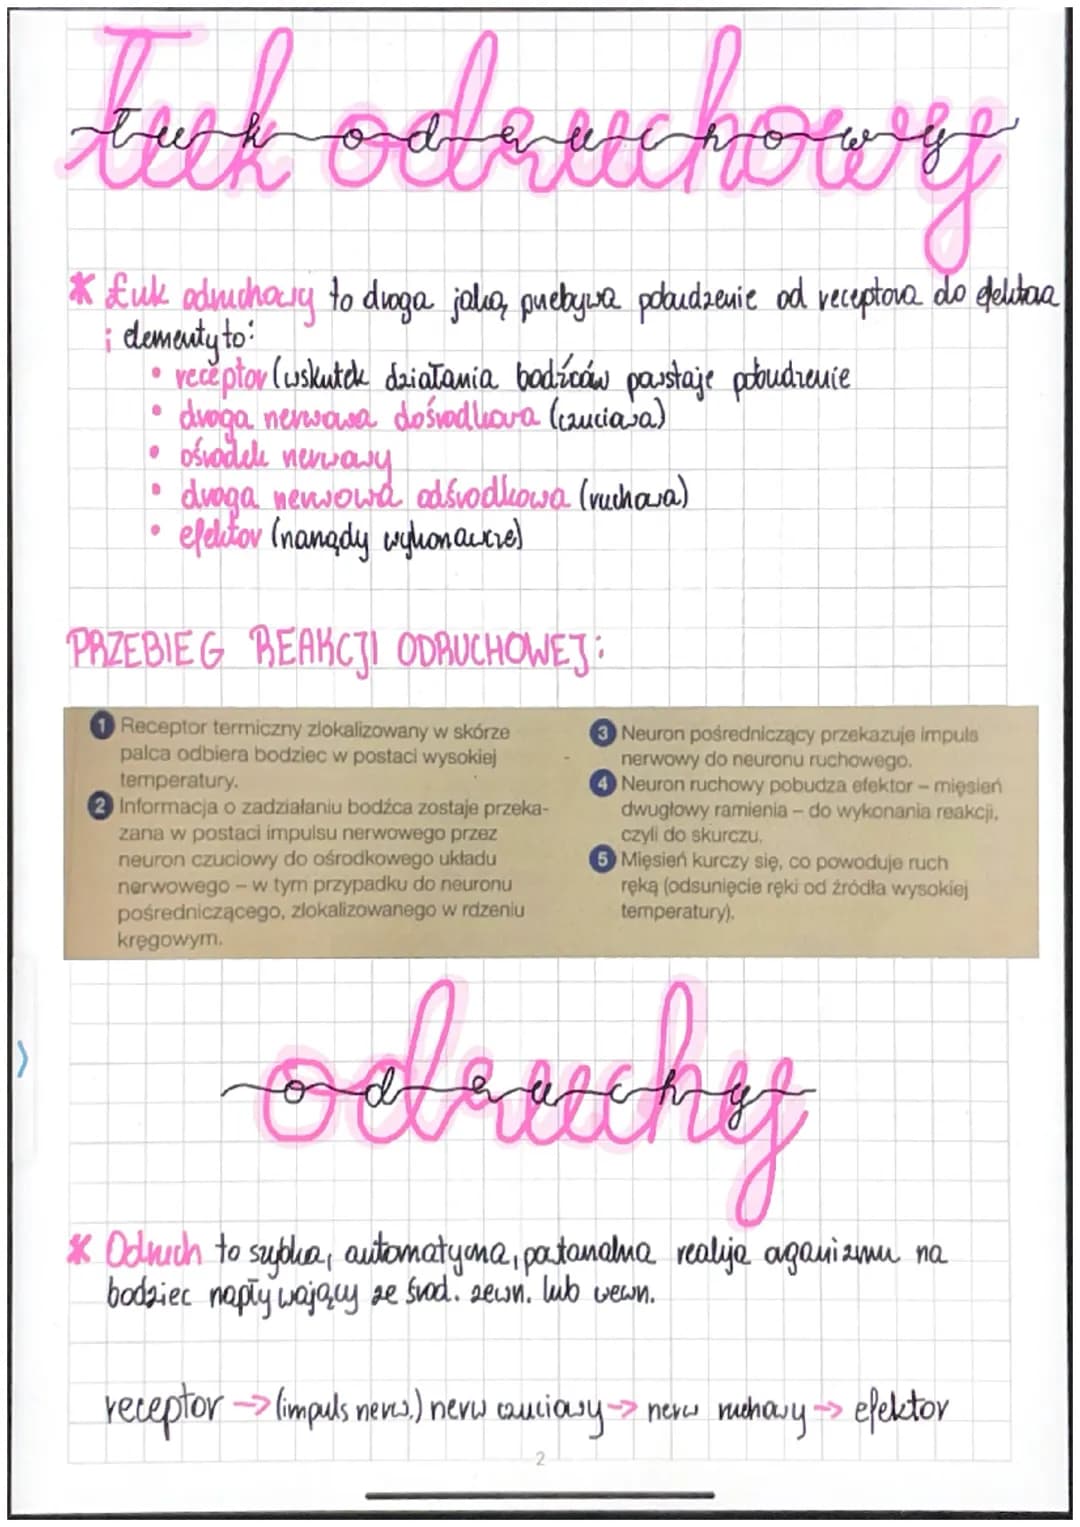 Łuk odruchowy
* Łuk odruchowy to droga jaką przebywa pobudzenie od receptora do efektora
i elementy to:
• receptor (wskutek działania bodźców powstaje pobudzenie
• droga nerwowa dośrodkowa (czuciowa)
• ośrodek nerwowy
• droga nerwowa odśrodkowa (ruchowa)
• efektor (narządy wykonawcze)
PRZEBIEG REAKCJI ODRUCHOWEJ:
1 Receptor termiczny zlokalizowany w skórze
palca odbiera bodziec w postaci wysokiej
temperatury.
2 Informacja o zadziałaniu bodźca zostaje przeka-
zana w postaci impulsu nerwowego przez
neuron czuciowy do ośrodkowego układu
nerwowego – w tym przypadku do neuronu
pośredniczącego, zlokalizowanego w rdzeniu
kręgowym.
3 Neuron pośredniczący przekazuje impuls
nerwowy do neuronu ruchowego.
4 Neuron ruchowy pobudza efektor – mięsień
dwugłowy ramienia – do wykonania reakcji,
czyli do skurczu.
5 Mięsień kurczy się, co powoduje ruch
ręką (odsunięcie ręki od źródła wysokiej
temperatury).
odruchy
* Odruch to szybka, automatyczna, reakcja organizmu na
bodziec napływający ze środ. zewn. lub wewn.
receptor → (impuls nerw.) nerw czuciowy → nerw ruchowy → efektor
2